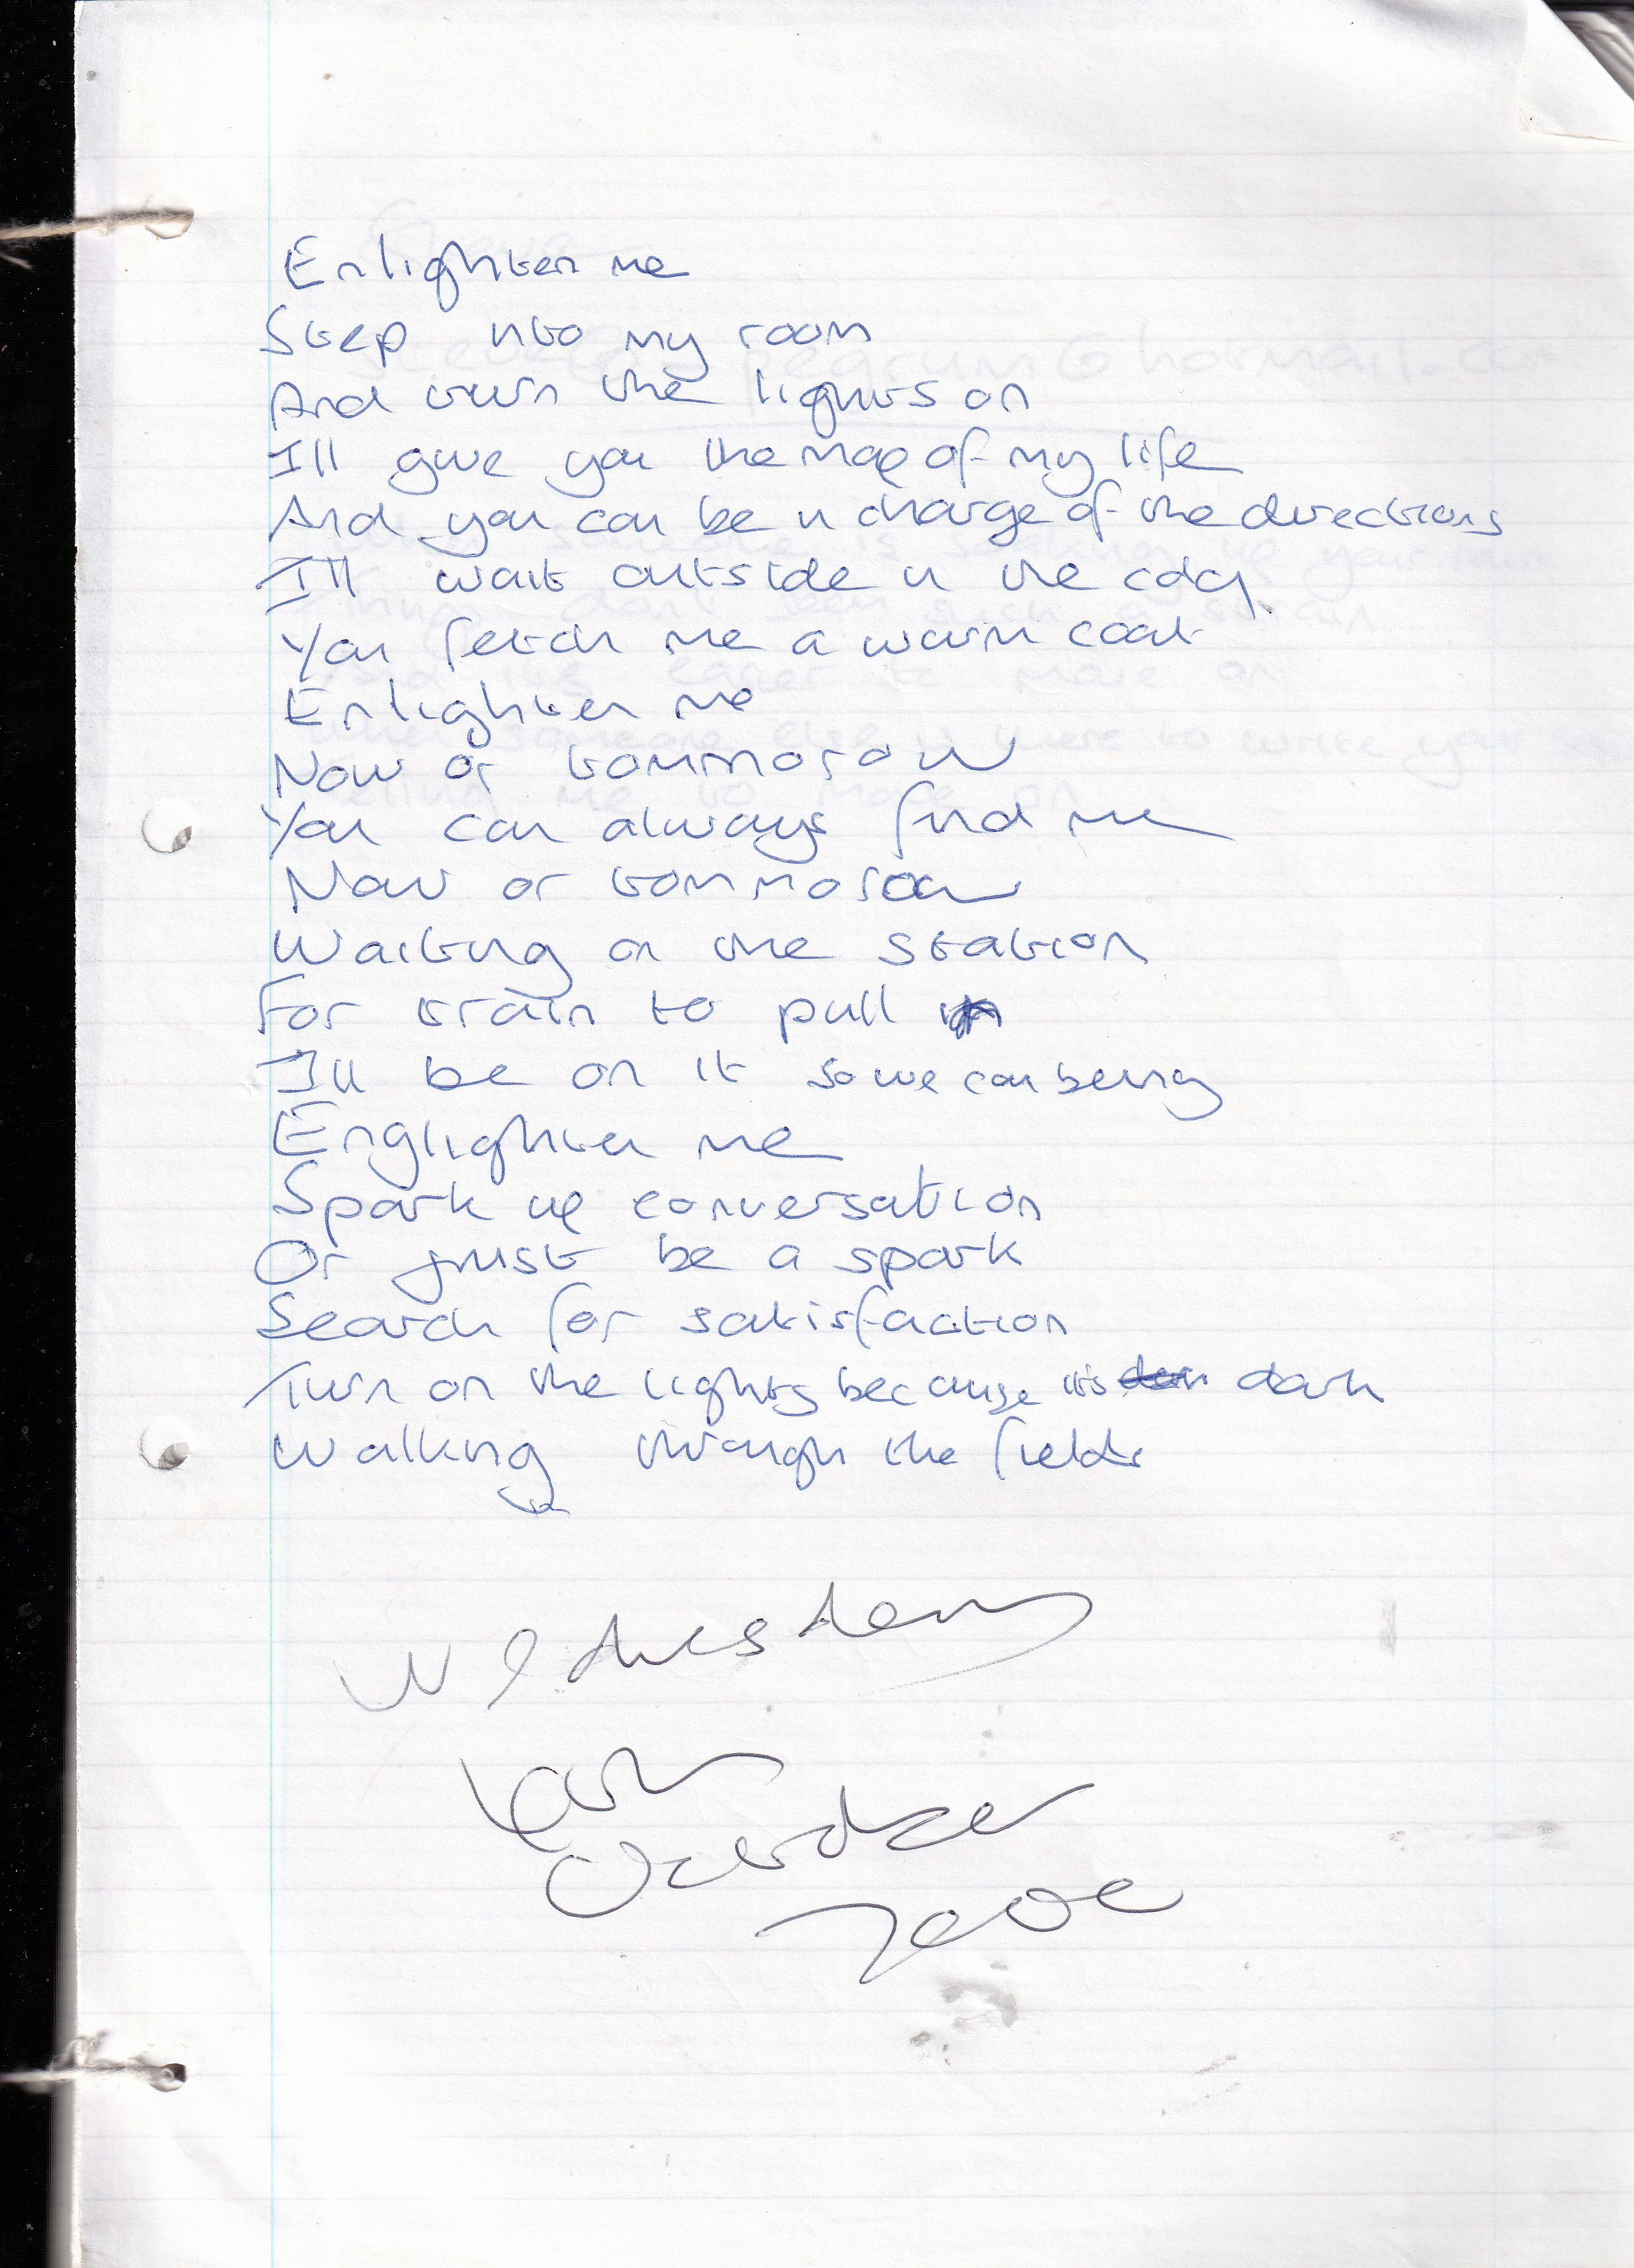 Enlighten me
Step into my room
And turn the lights on
I'll give you the map of my life
And you can be in charge of the directions
I'll wait outside in the cold
You fetch me a warm coat
Enlighten me
Now or tommorow
You can always find me
Now or tommorow
Waiting on the station
For train to pull in
I'll be on it so we can being
Englighten me
Spark up conversation
Or just be a spark
Search for satisfaction
Turn on the lights because its dark
Walking through the fields
Wednesday